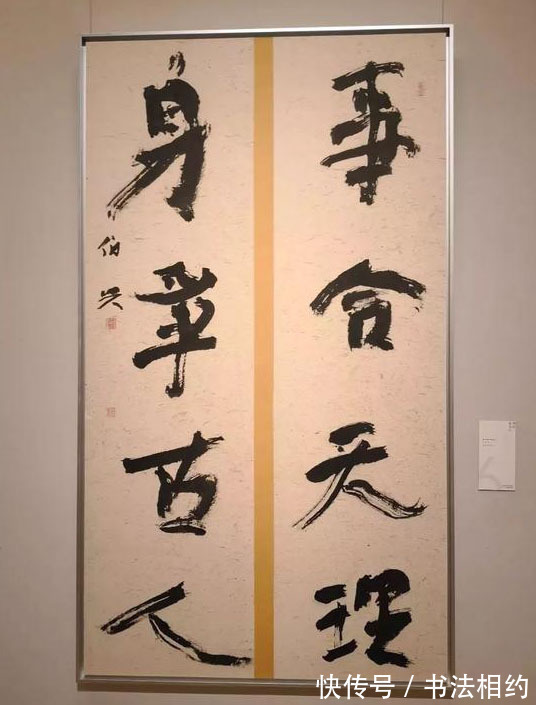 事合天理
身古人
伯
快传号 / 书法相约